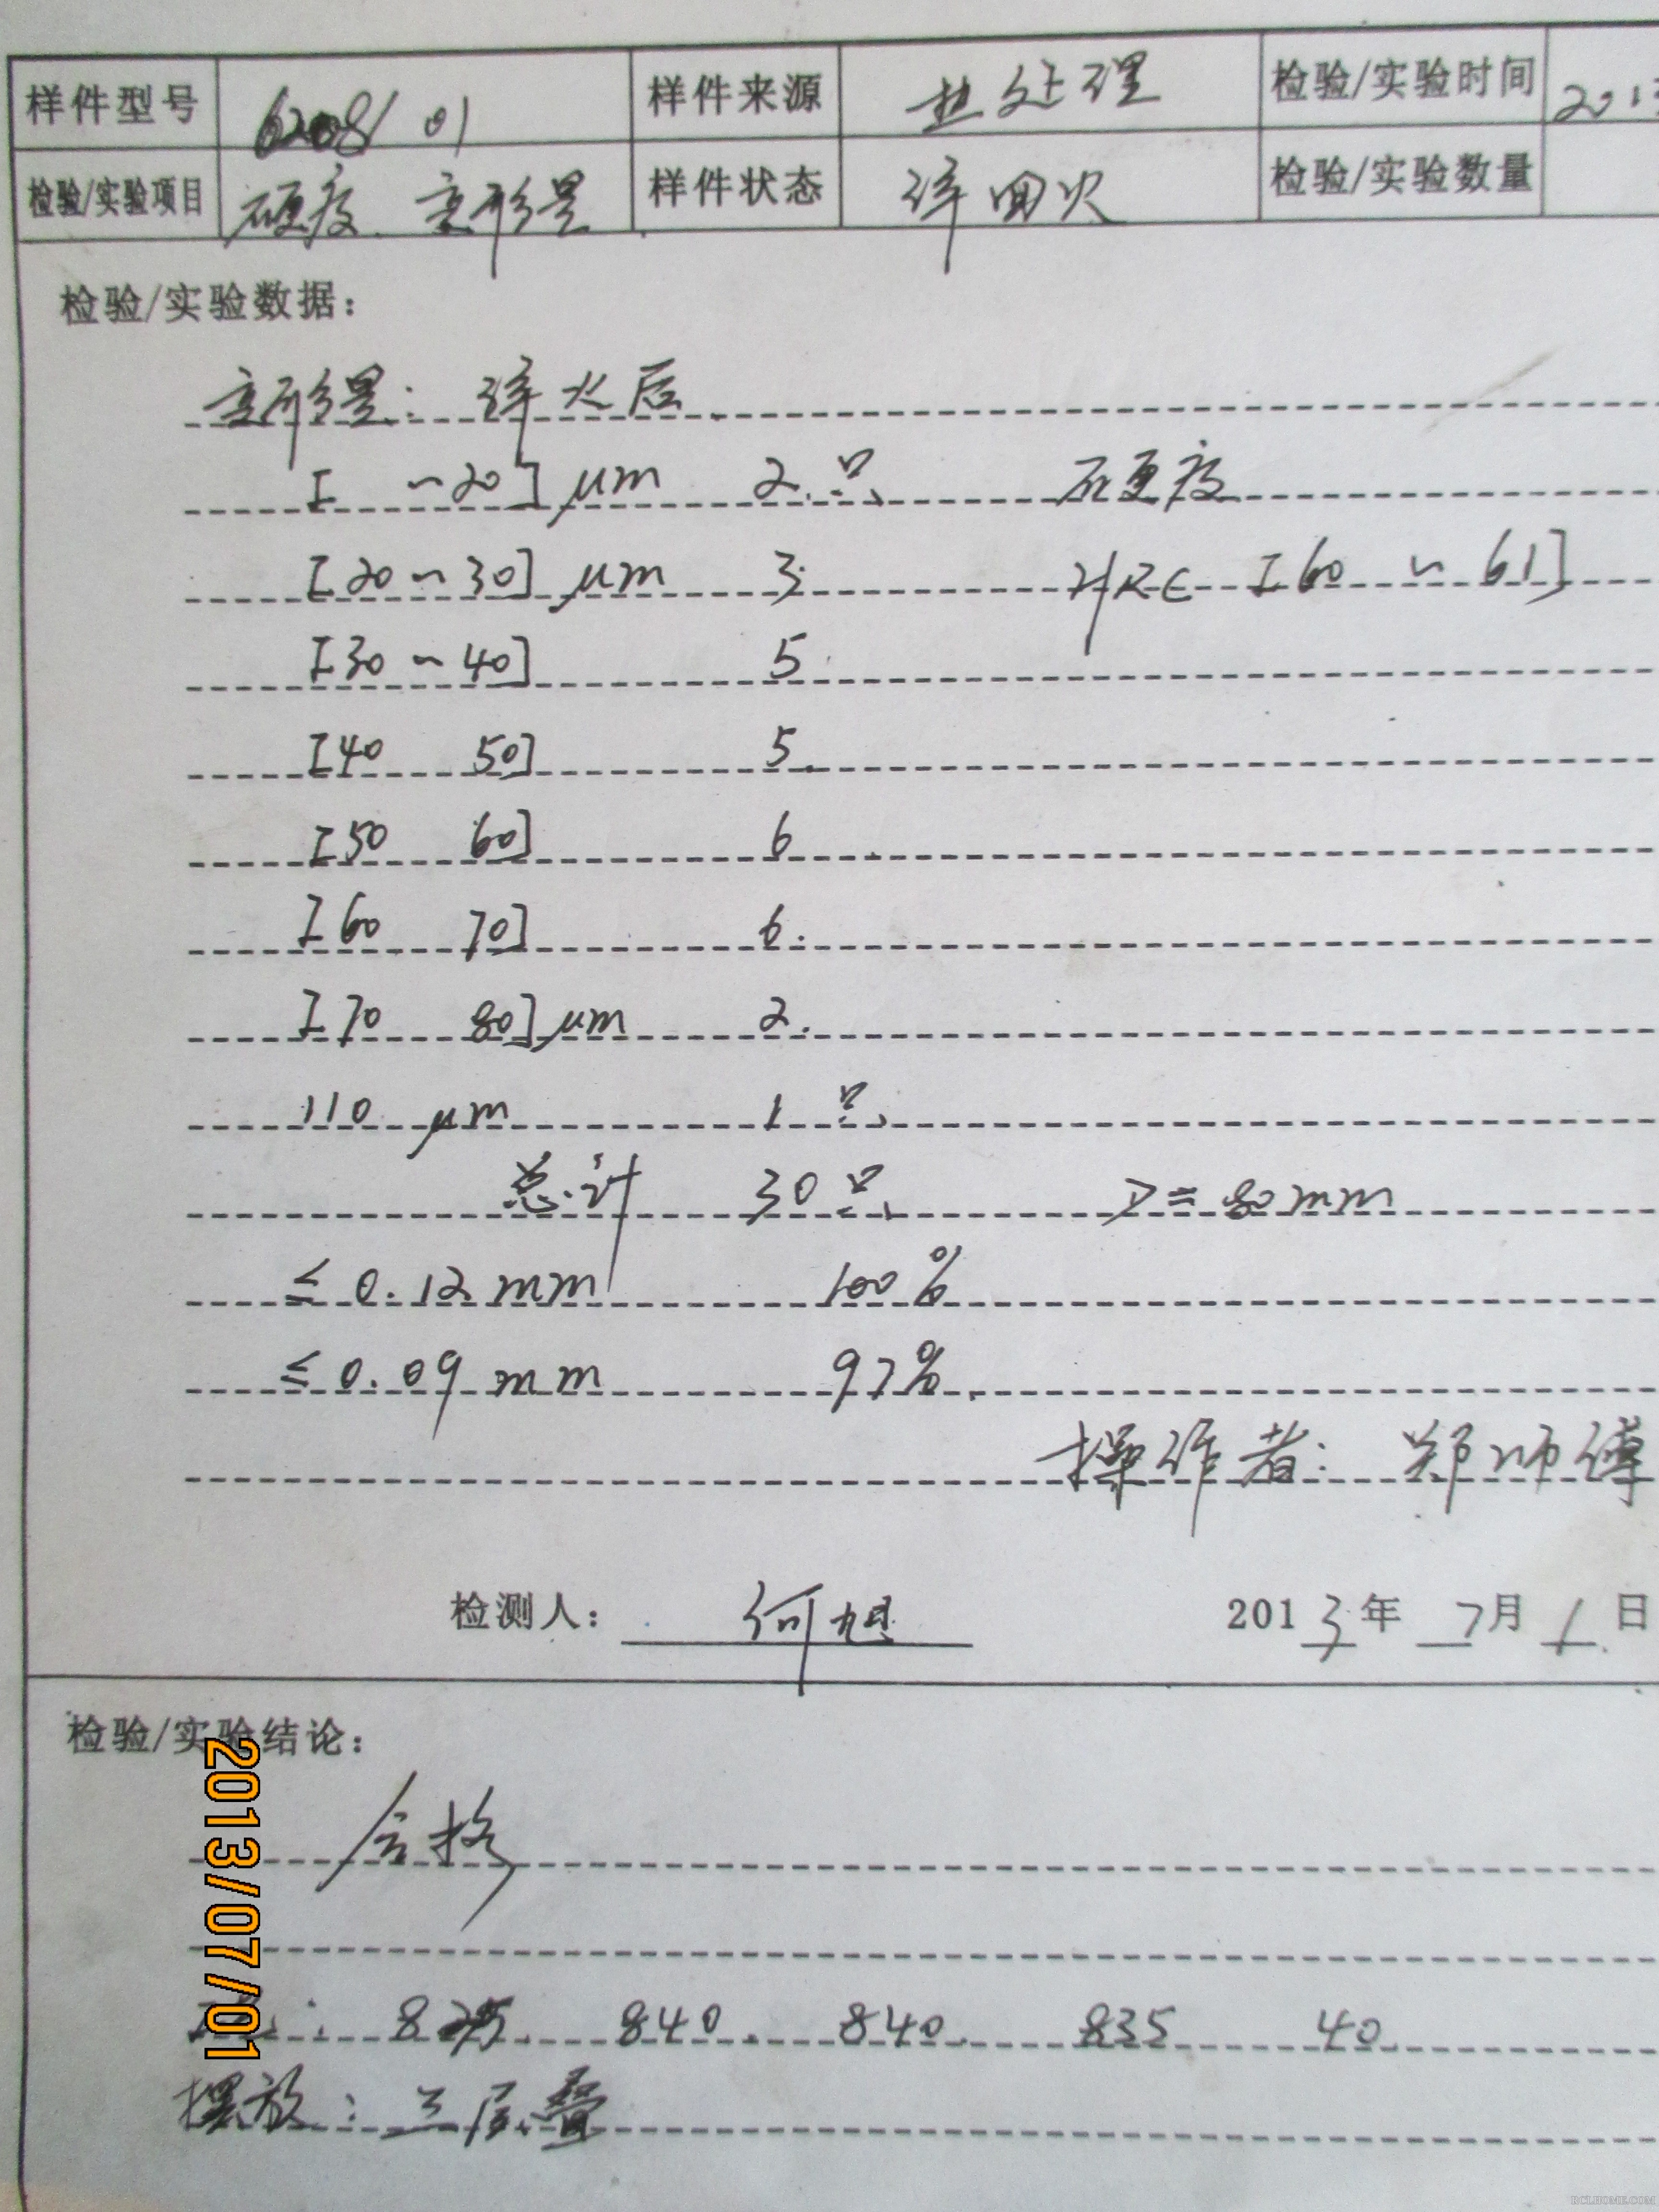 样件型号 6208/01 样件来源 热处理 检验/实验时间 201
检验/实验项目 硬度、变形量 样件状态 淬回火 检验/实验数量
检验/实验数据:
变形量: 淬火后
[ ~20] μm 2只 硬度
[20~30] μm 3 HRC [60 ~ 61]
[30~40] 5
[40 50] 5
[50 60] 6
[60 70] 6
[70 80] μm 2
110 μm 1只
总计 30只 D=80mm
≤0.12mm 100%
≤0.09mm 97%
操作者: 郑师傅
检测人: 何旭 2013年7月1日
检验/实验结论:
合格
2013/07/01
: 825 840 840 835 40
摆放: 三层叠
RCLHOME.COM